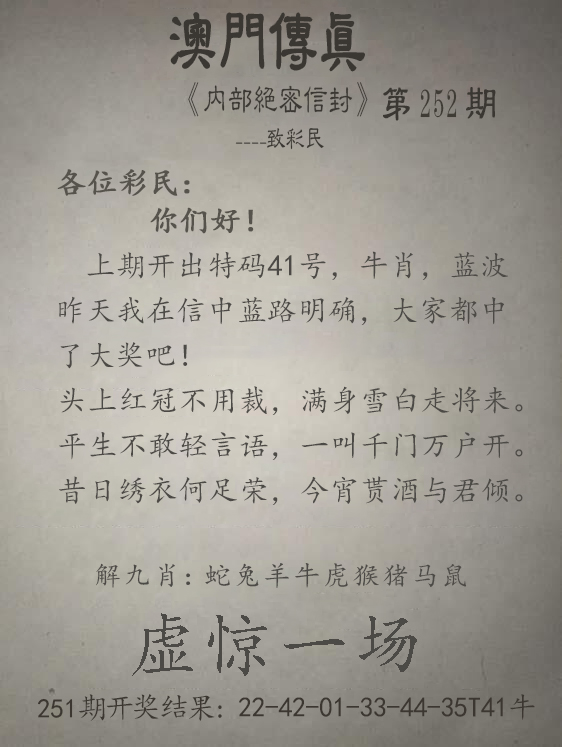 澳門傳眞
《内部絕密信封》第252期
----致彩民
各位彩民：
你们好！
上期开出特码41号，牛肖，蓝波
昨天我在信中蓝路明确，大家都中
了大奖吧！
头上红冠不用裁，满身雪白走将来。
平生不敢轻言语，一叫千门万户开。
昔日绣衣何足荣，今宵贳酒与君倾。
解九肖：蛇兔羊牛虎猴猪马鼠
虚惊一场
251期开奖结果：22-42-01-33-44-35T41牛